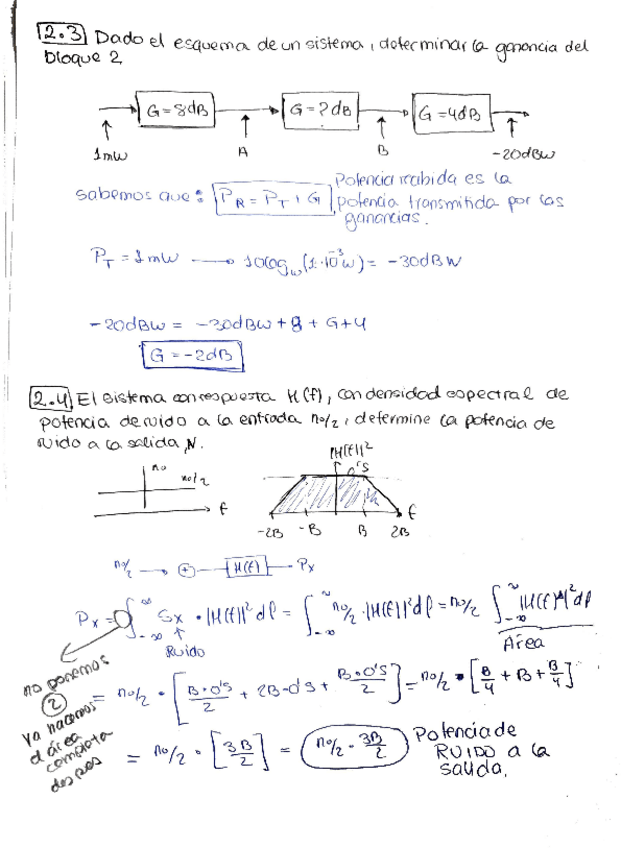 2.3 Dado el esquema de un sistema, determinar la ganancia del
bloque 2
G=8dB G=?dB G=4dB
1mW A B -20dBW
sabemos que: PR = PT + G Potencia recibida es la
potencia transmitida por las
ganancias.
PT = 1mW → 10log10(1·10^-3 W) = -30dBW
-20dBW = -30dBW + 8 + G + 4
G = -2dB
2.4 El sistema con respuesta H(f), con densidad espectral de
potencia de ruido a la entrada no/2, determine la potencia de
ruido a la salida, N.
no
no/2
f
|H(f)|^2
0'5
-2B -B B 2B f
no/2 → + → H(f) → Px
Px = ∫_-∞^∞ Sx · |H(f)|^2 df = ∫_-∞^∞ no/2 · |H(f)|^2 df = no/2 ∫_-∞^∞ |H(f)|^2 df
Ruido
Área
no ponemos
2
ya hacemos
el área
completa
= no/2 · [B·0'5/2 + 2B·0'5 + B·0'5/2] = no/2 · [B/4 + B + B/4]
= no/2 · [3B/2] = no/2 · 3B/2
Potencia de
RUIDO a la
salida.